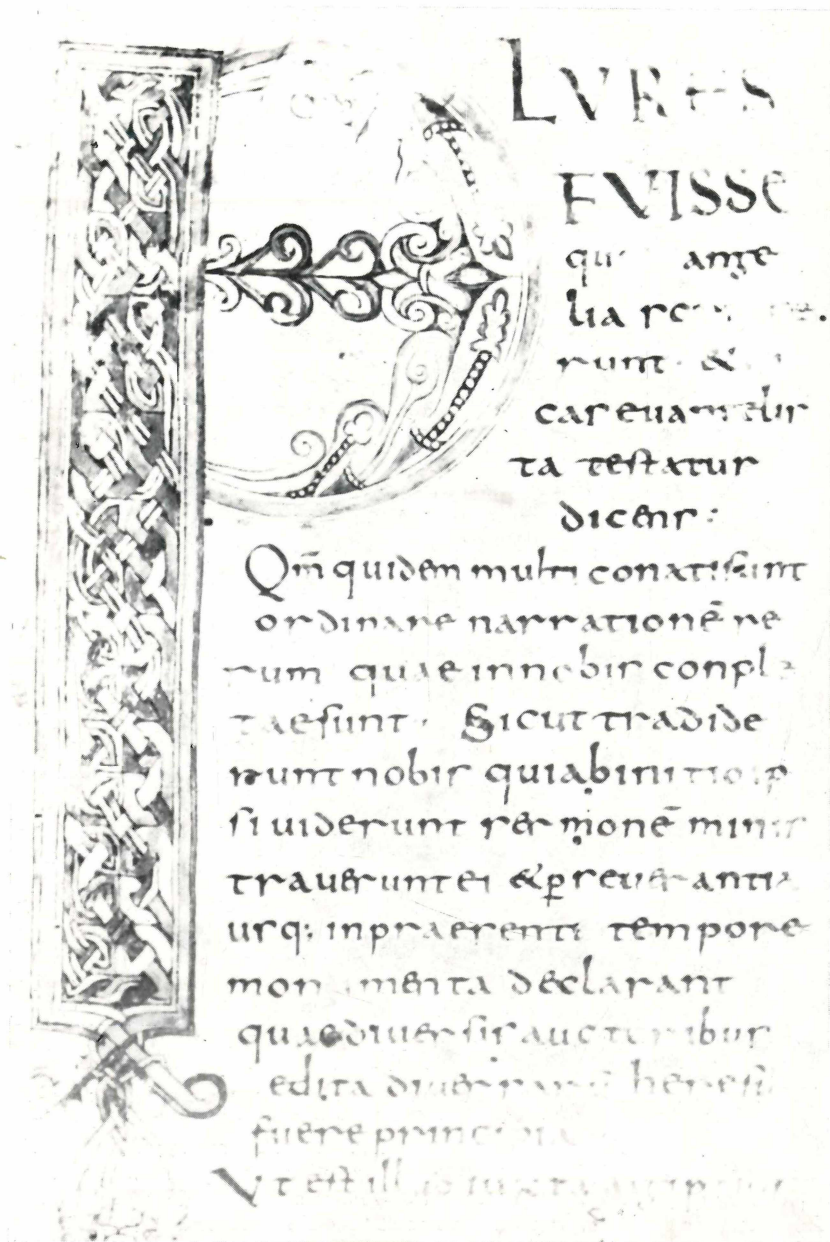 PLURES
FUISSE
qui ange
lia
runt &
cas euangelis
ta testatur
dicens:
Qm̄ quidem multi conati sunt
ordinare narrationē re
rum quae in nobis conple
tae sunt. Sicut tradide
runt nobis qui ab initio ip
si uiderunt sermonē minis
trauerunt ei & perseuerantia
usq; in praesenti tempore
monumenta declarant
quae diuersis auctoribus
edita diuersarū heresū
fuere principia
Ut est illud iuxta